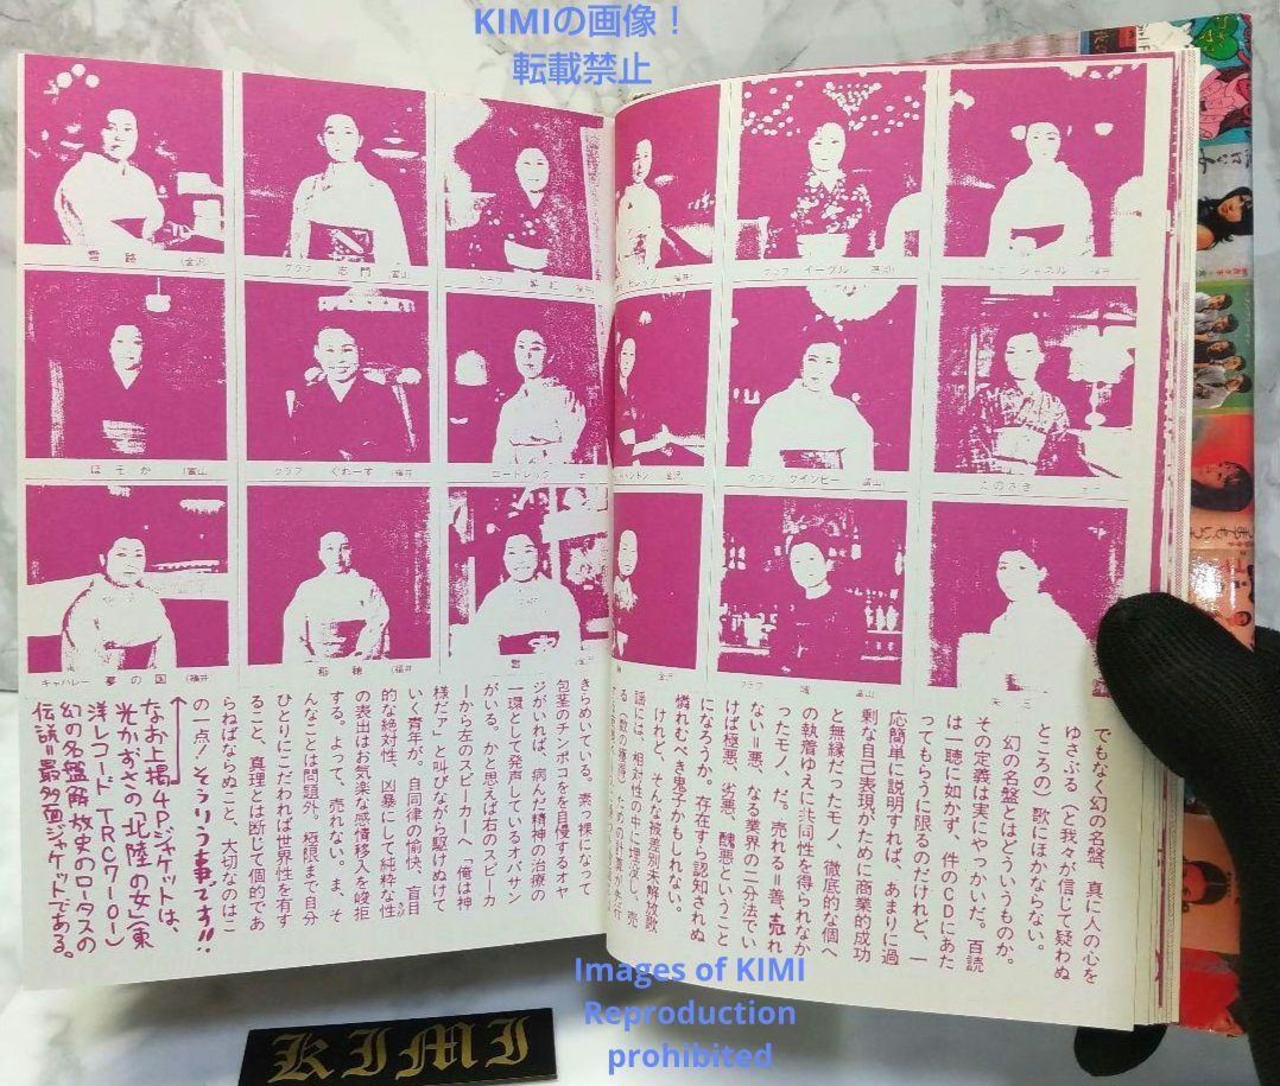 KIMIの画像！
転載禁止
雪路 (金沢)
クラブ 志門 富山
ほそか (富山
クラブ ぐれーす (福井
キャバレー 夢の国 (福井
稲穂 (福井
クラブ イーグル
クラブ シャネル 福井
クラブ クインビー 富山)
クラブ 城 富山
でもなく幻の名盤、真に人の心を
ゆさぶる（と我々が信じて疑わぬ
ところの）歌にほかならない。
幻の名盤とはどういうものか。
その定義は実にやっかいだ。百読
は一聴に如かず、件のCDにあた
ってもらうに限るのだけれど、一
応簡単に説明すれば、あまりに過
剰な自己表現がために商業的成功
と無縁だったモノ、徹底的な個へ
の執着ゆえに共同性を得られなか
ったモノ、だ。売れる＝善、売れ
ない＝悪、なる業界の二分法でい
けば極悪、劣悪、醜悪ということ
になろうか。存在すら認知されぬ
憐れむべき鬼子かもしれない。
けれど、そんな被差別未解放歌
謡には、相対性の中に埋没し、売
きらめいている。素っ裸になって
包茎のチンポコをを自慢するオヤ
ジがいれば、病んだ精神の治療の
一環として発声しているオバサン
がいる。かと思えば右のスピーカ
ーから左のスピーカーへ「俺は神
様だァ」と叫びながら駆けぬけて
いく青年が。自同律の愉快、盲目
的な絶対性、凶暴にして純粋な性
の表出はお気楽な感情移入を峻拒
する。よって、売れない。ま、そ
んなことは問題外。極限まで自分
ひとりにこだわれば世界性を有す
ること、真理とは断じて個的であ
らねばならぬこと、大切なのはこ
の一点！そういう事です!!
なお上掲4Pジャケットは、
光かおさの「北陸の女」(東
洋レコード TRC7-101)
幻の名盤解放史のロータスの
伝説＝最多面ジャケットである。
KIMI
Images of KIMI
Reproduction
prohibited